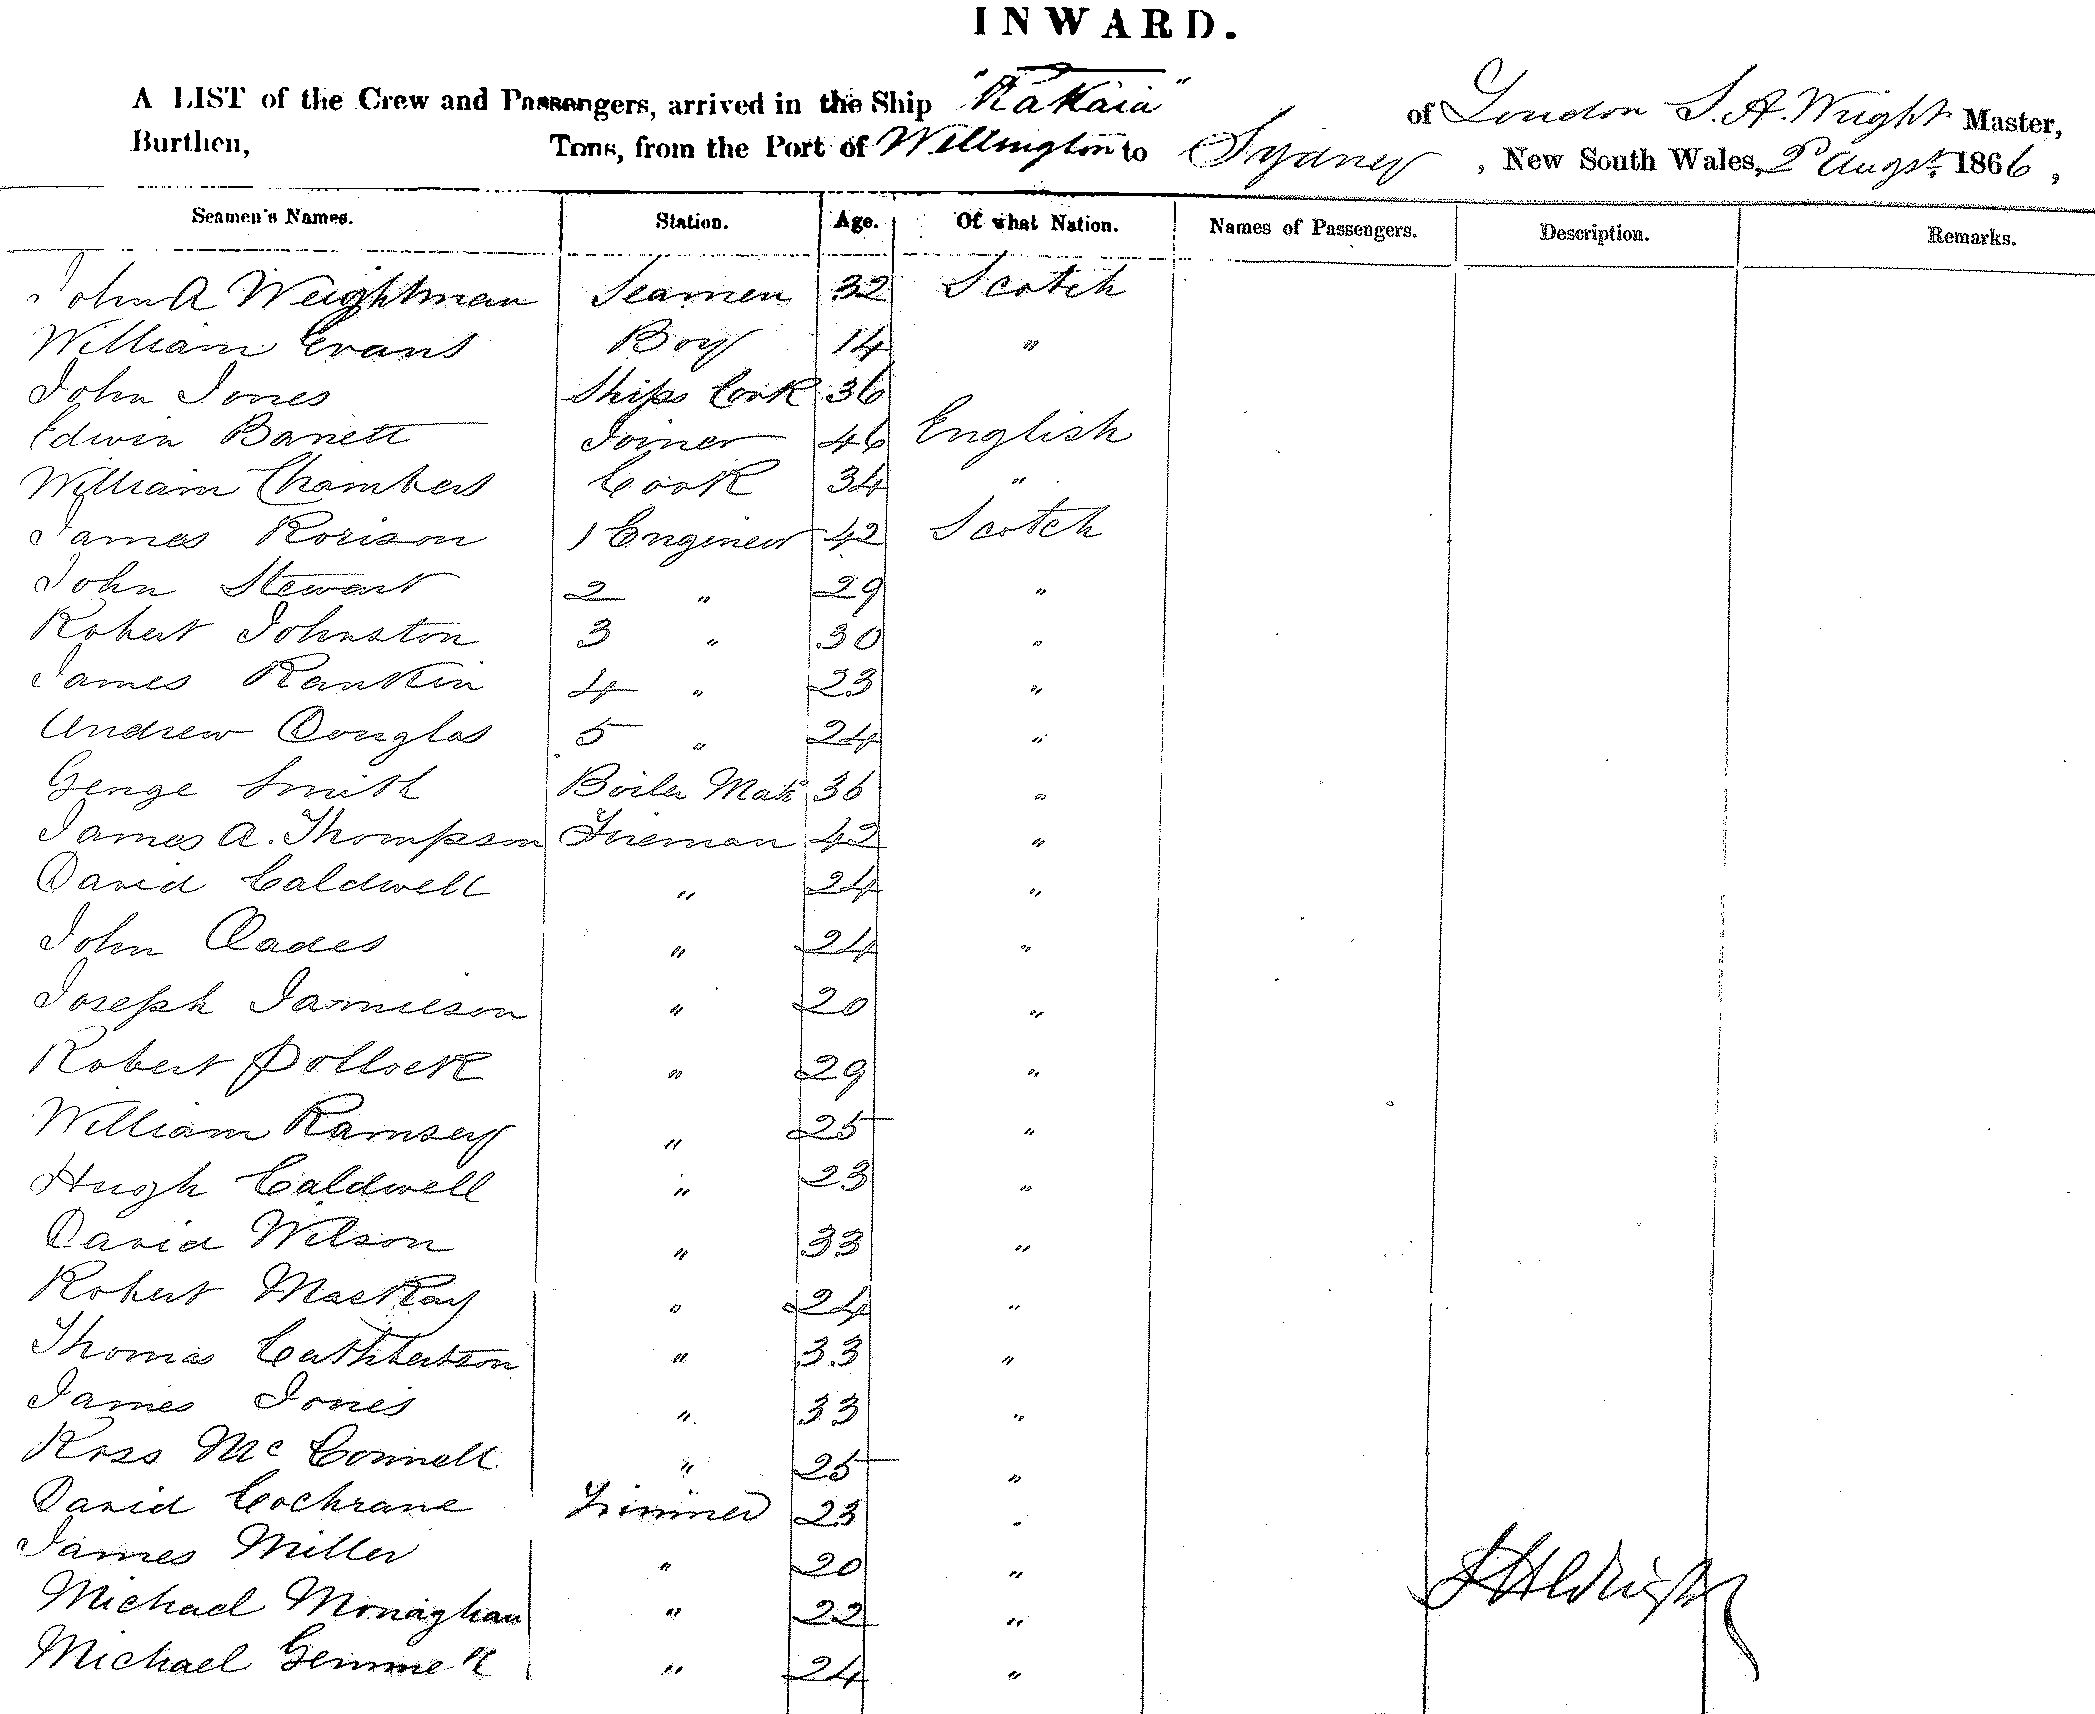 INWARD.
A LIST of the Crew and Passengers, arrived in the Ship "Rakaia" of London S. A. Wright Master,
Burthen, Tons, from the Port of Wellington to Sydney, New South Wales, 2d Augst. 1866,
Seamen's Names. Station. Age. Of what Nation. Names of Passengers. Description. Remarks.
John A Weightman Seamen 32 Scotch
William Evans Boy 14 "
John Jones Ships Cook 36
Edwin Barrett Joiner 46 English
William Chambers Cook 34 "
James Rorison 1 Engineer 42 Scotch
John Stewart 2 " 29 "
Robert Johnston 3 " 30 "
James Rankin 4 " 23 "
Andrew Douglas 5 " 24 "
George Smith Boiler Mak 36 "
James A. Thompson Fireman 42 "
David Caldwell " 24 "
John Eades " 24 "
Joseph Jamieson " 20 "
Robert Pollock " 29 "
William Ramsey " 25 "
Hugh Caldwell " 23 "
David Wilson " 33 "
Robert MacKay " 24 "
Thomas Cuthbertson " 33 "
James Jones " 33 "
Ross McConnell " 25 "
David Cochrane Trimmer 23 "
James Miller " 20 "
Michael Monaghan " 22 "
Michael " 24 "